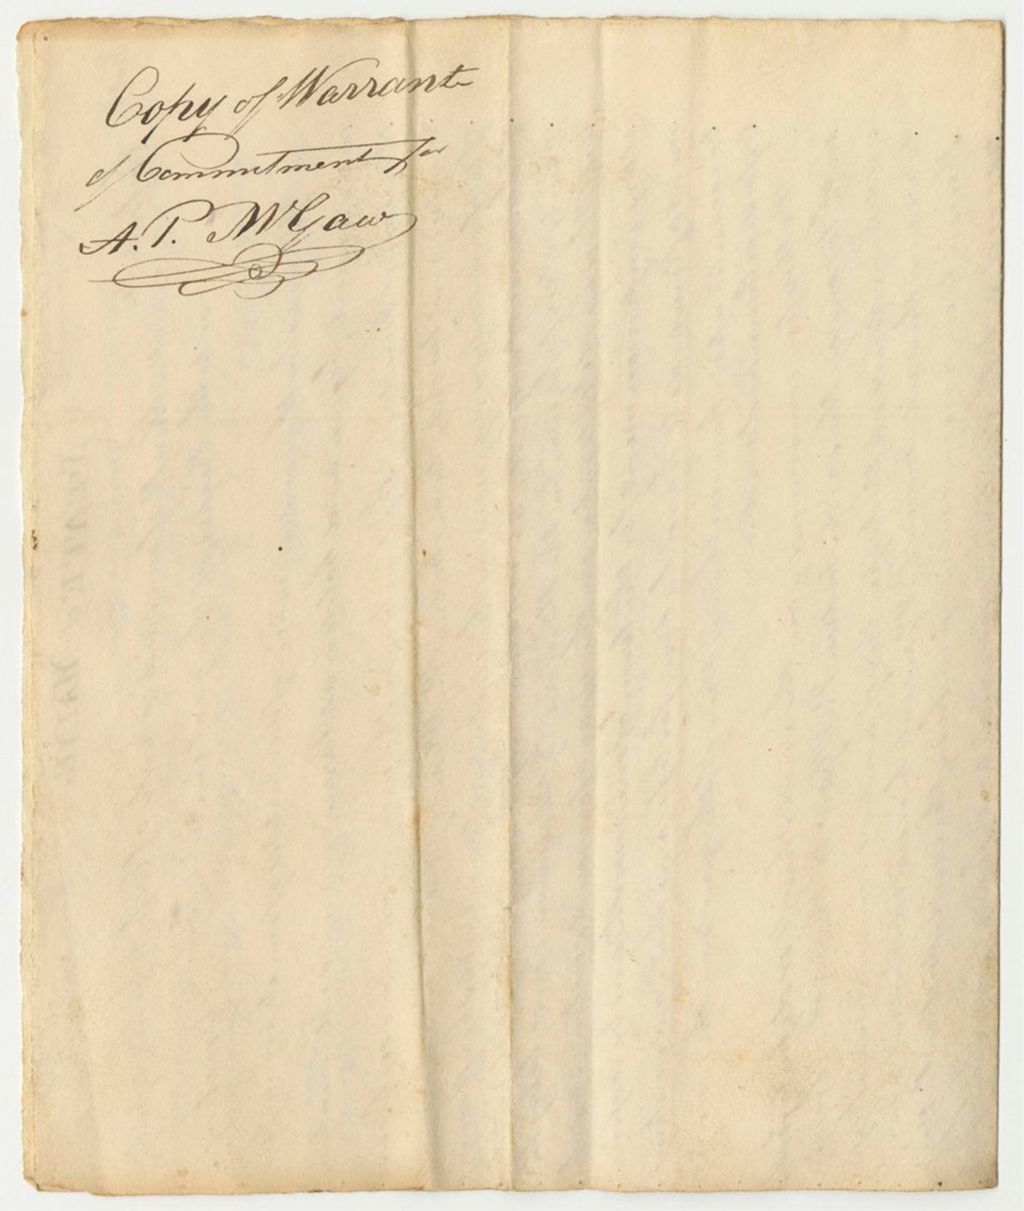 Copy of Warrant
of Commitment for
A. P. McGaw